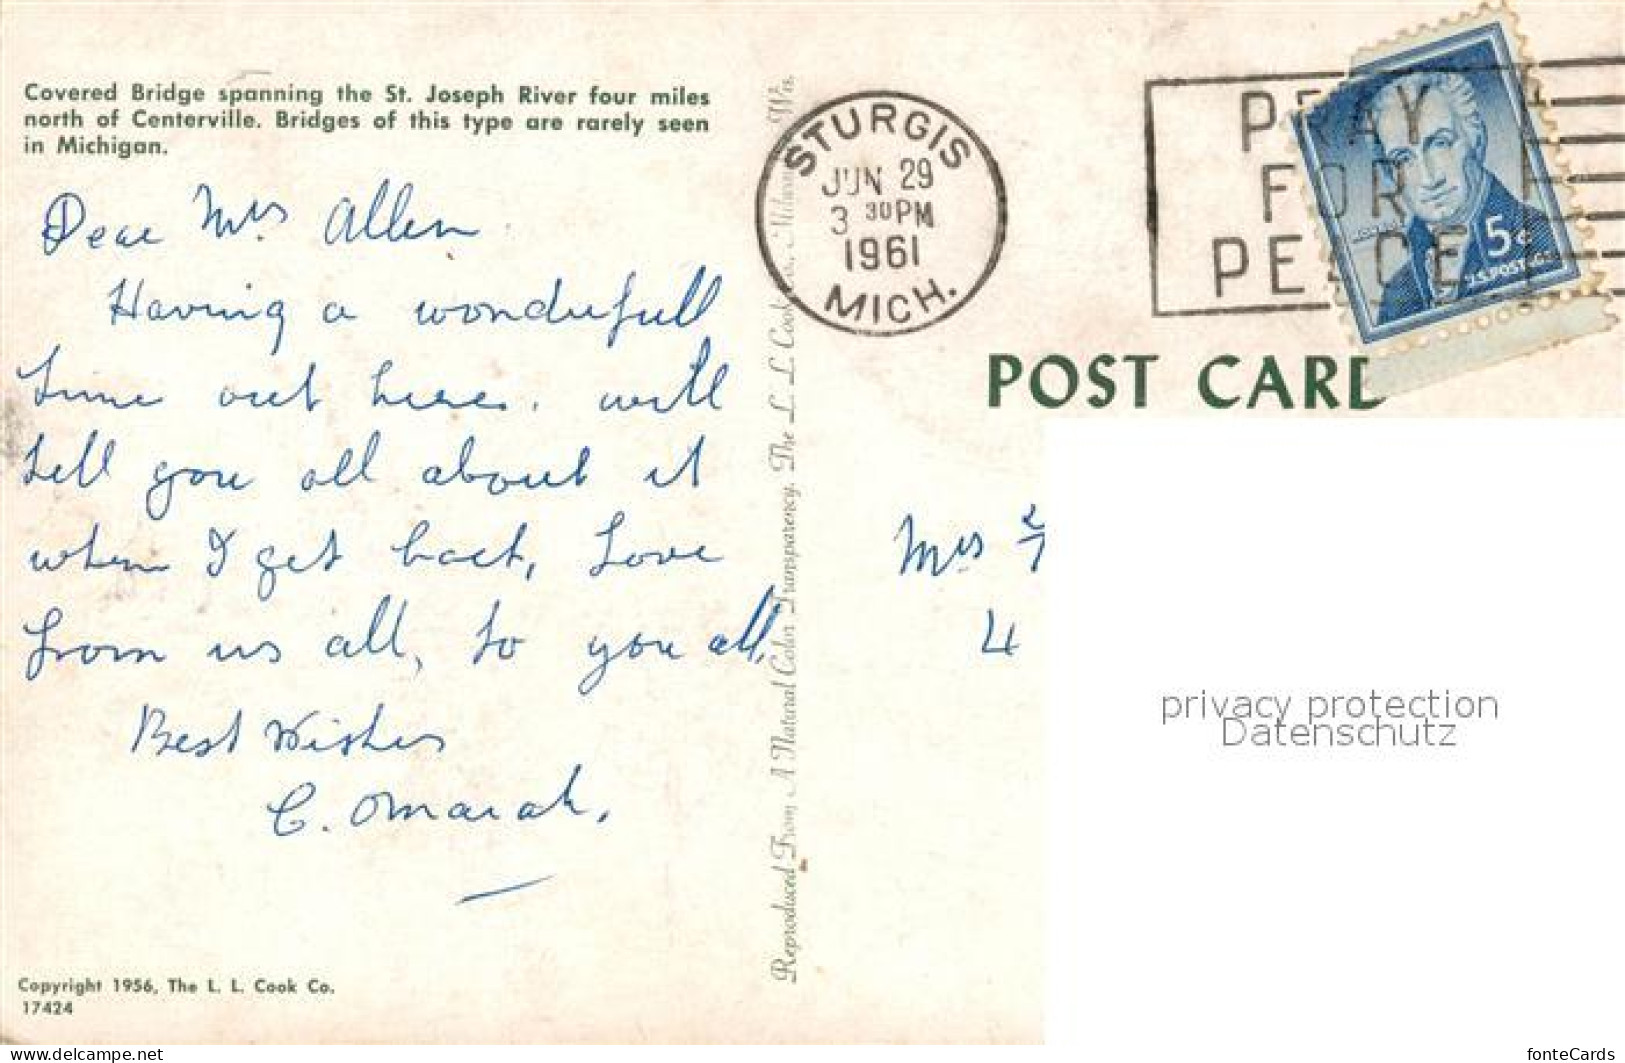 Covered Bridge spanning the St. Joseph River four miles
north of Centerville. Bridges of this type are rarely seen
in Michigan.
Dear Mrs Allen
Having a wonderfull
time out here. will
tell you all about it
when I get back, Love
from us all, to you all,
Best Wishes
C. Omarah.
Copyright 1956, The L. L. Cook Co.
17424
Reproduced From A Natural Color Transparency. The L. L. Cook Co., Milwaukee, Wis.
STURGIS
JUN 29
3 30PM
1961
MICH.
PRAY
FOR
PEACE
5¢
U.S. POSTAGE
POST CARD
Mrs
4
privacy protection
Datenschutz
www.delcampe.net
fonteCards